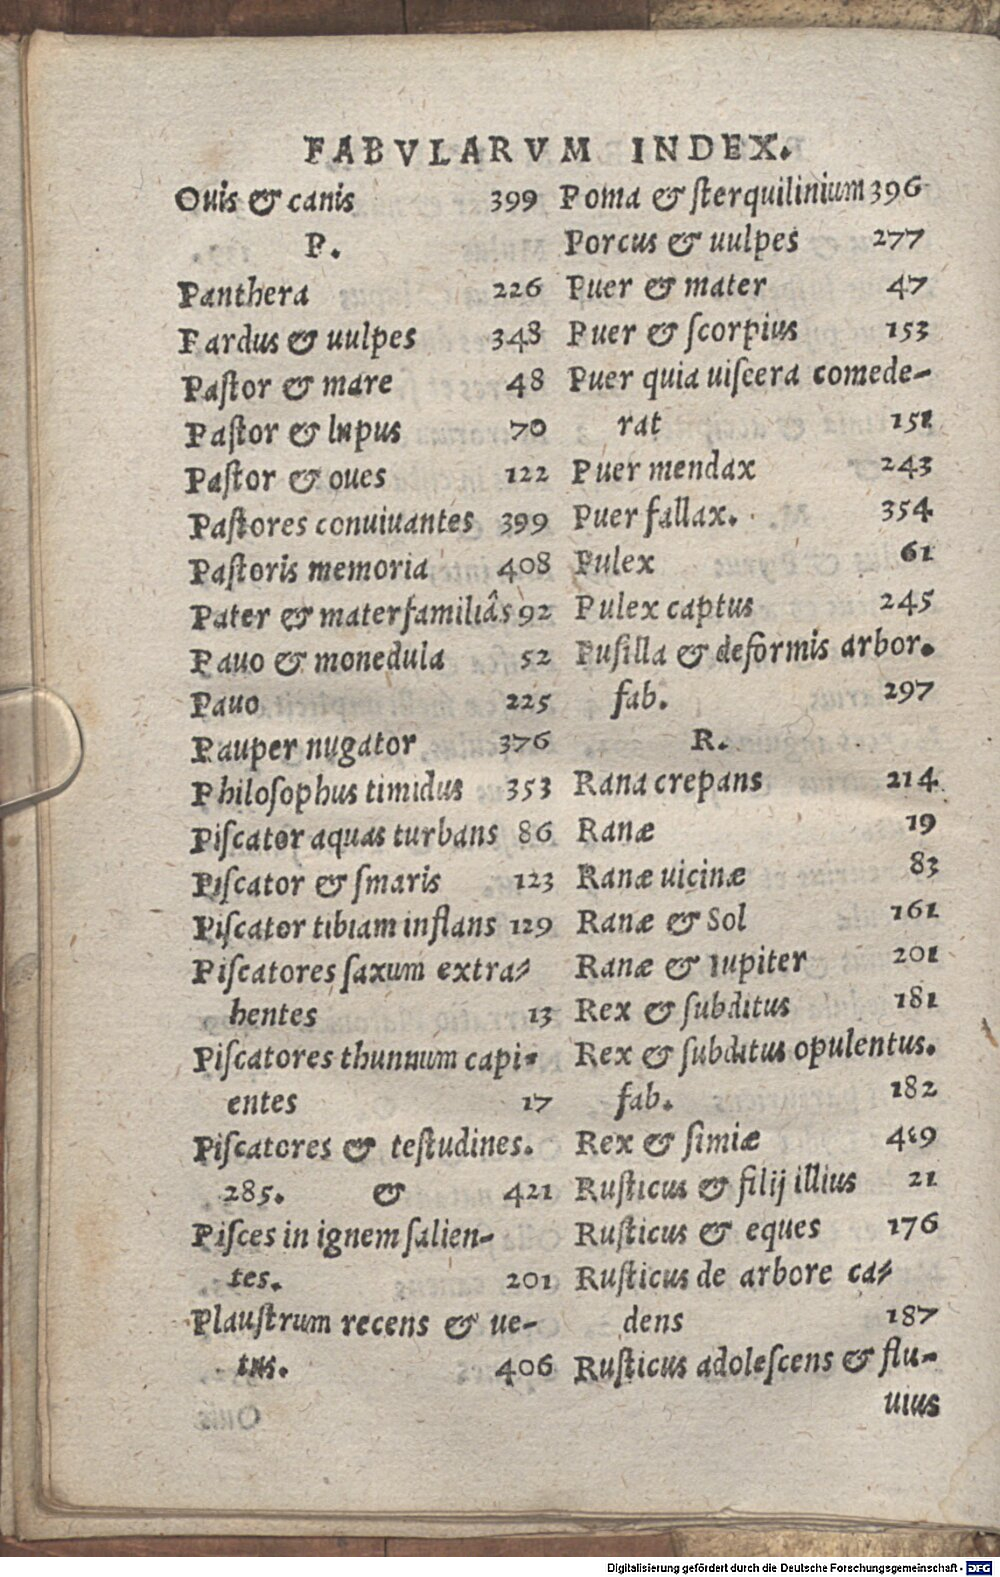 FABVLARVM INDEX.
Ouis & canis 399
P.
Panthera 226
Pardus & uulpes 348
Paſtor & mare 48
Paſtor & lupus 70
Paſtor & oues 122
Paſtores conuiuantes 399
Paſtoris memoria 408
Pater & materfamiliâs 92
Pauo & monedula 52
Pauo 225
Pauper nugator 376
Philoſophus timidus 353
Piſcator aquas turbans 86
Piſcator & ſmaris 123
Piſcator tibiam inflans 129
Piſcatores ſaxum extra-
hentes 13
Piſcatores thunnum capi-
entes 17
Piſcatores & teſtudines.
285. & 421
Piſces in ignem ſalien-
tes. 201
Plauſtrum recens & ue-
tus. 406
Poma & ſterquilinium 396
Porcus & uulpes 277
Puer & mater 47
Puer & ſcorpius 153
Puer quia uiſcera comede-
rat 151
Puer mendax 243
Puer fallax. 354
Pulex 61
Pulex captus 245
Puſilla & deformis arbor.
fab. 297
R.
Rana crepans 214
Ranæ 19
Ranæ uicinæ 83
Ranæ & Sol 161
Ranæ & Iupiter 201
Rex & ſubditus 181
Rex & ſubditus opulentus.
fab. 182
Rex & ſimiæ
Ruſticus & filij illius 21
Ruſticus & eques 176
Ruſticus de arbore ca-
dens 187
Ruſticus adoleſcens & flu-
uius
Digitalisierung gefördert durch die Deutsche Forschungsgemeinschaft - DFG